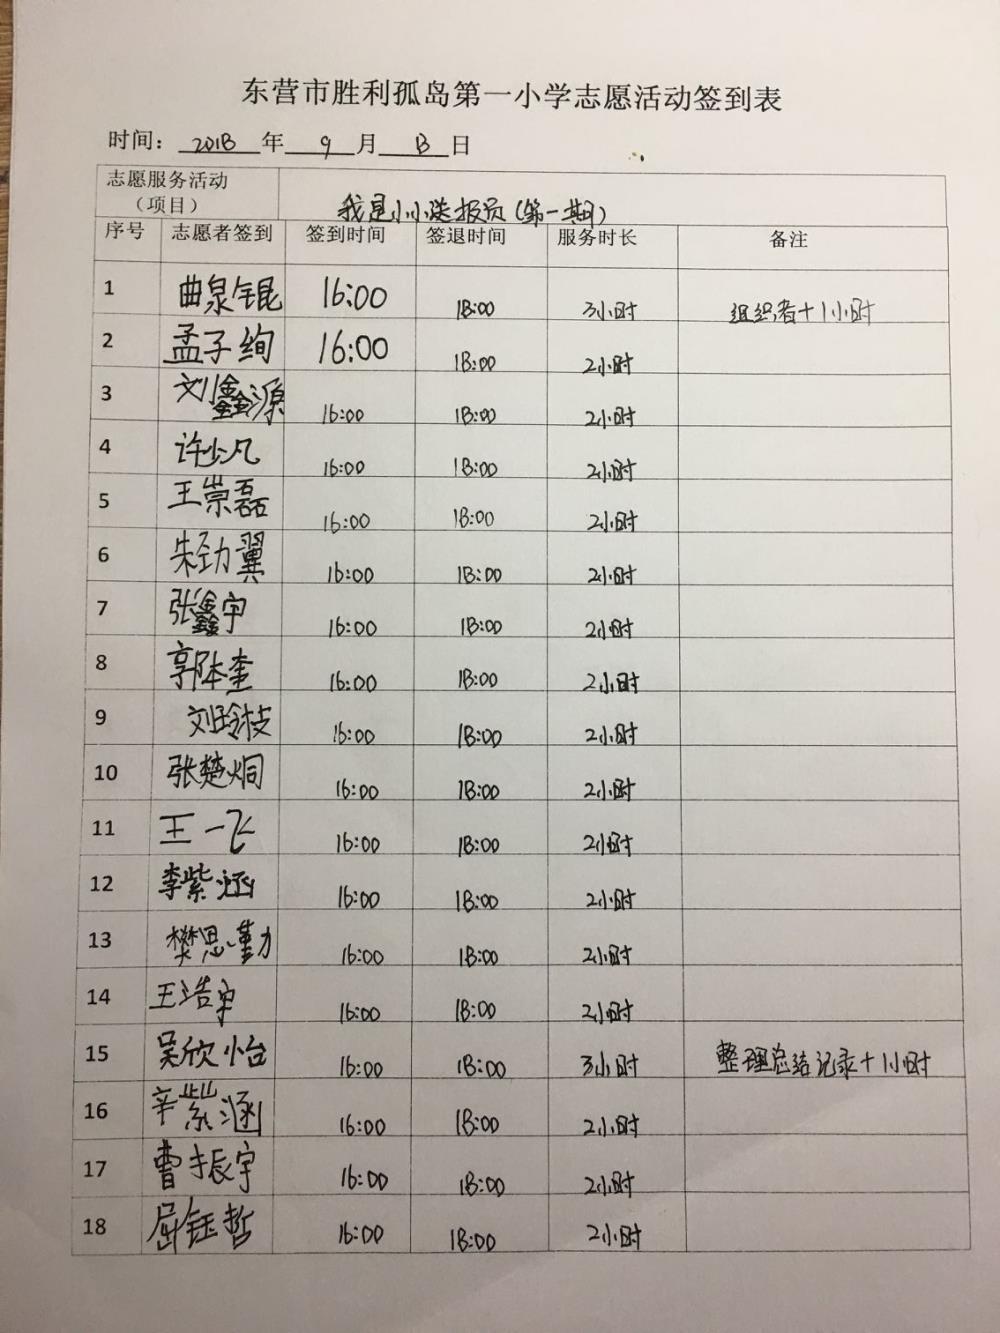 东营市胜利孤岛第一小学志愿活动签到表
时间：2018 年 9 月 13 日
志愿服务活动（项目） 我是小小送报员（第一期）
序号 志愿者签到 签到时间 签退时间 服务时长 备注
1 曲泉锟 16:00 18:00 3小时 组织者+1小时
2 孟子绚 16:00 18:00 2小时
3 刘鑫源 16:00 18:00 2小时
4 许少凡 16:00 18:00 2小时
5 王崇磊 16:00 18:00 2小时
6 朱劲翼 16:00 18:00 2小时
7 张鑫宇 16:00 18:00 2小时
8 郭本奎 16:00 18:00 2小时
9 刘玲枝 16:00 18:00 2小时
10 张楚炯 16:00 18:00 2小时
11 王一飞 16:00 18:00 2小时
12 李紫涵 16:00 18:00 2小时
13 樊思勤 16:00 18:00 2小时
14 王浩宇 16:00 18:00 2小时
15 吴欣怡 16:00 18:00 3小时 整理总结记录+1小时
16 辛紫涵 16:00 18:00 2小时
17 曹振宇 16:00 18:00 2小时
18 屈钰哲 16:00 18:00 2小时